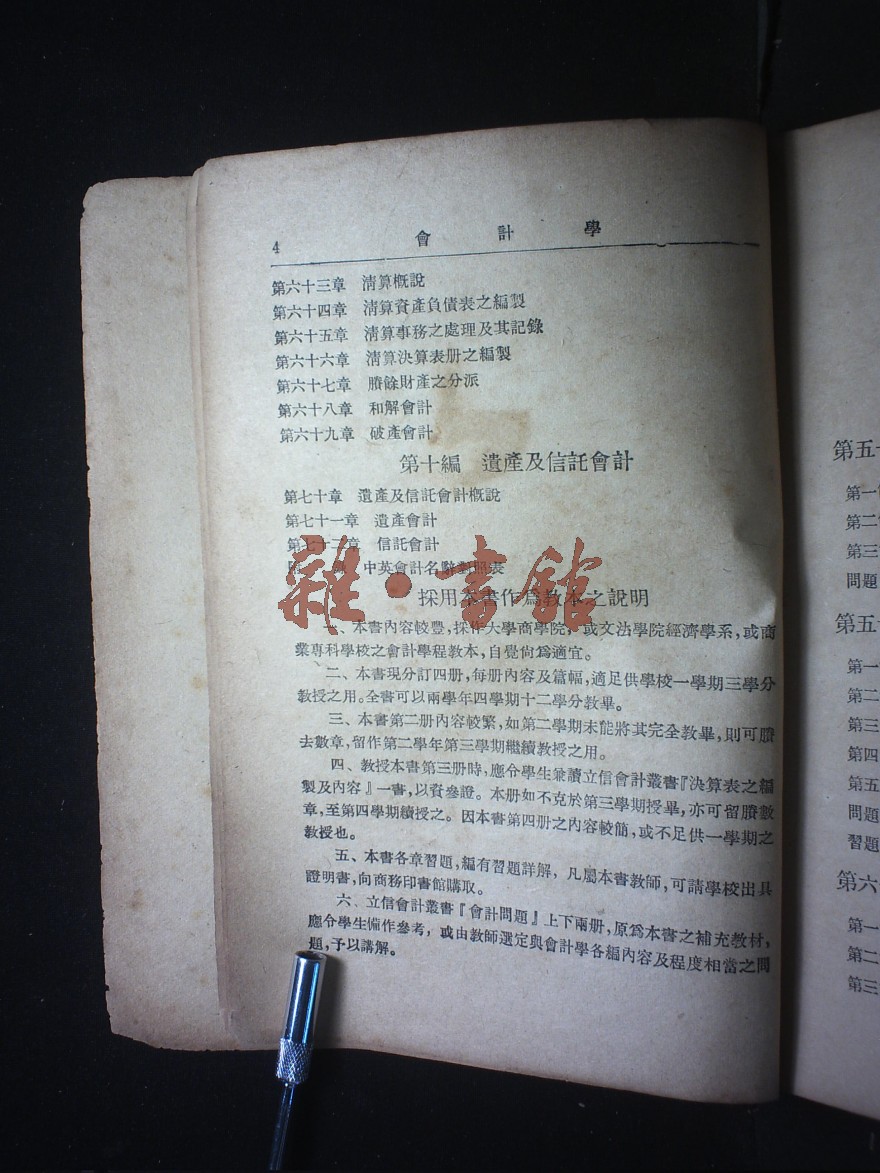 4 會計學
第六十三章 清算概說
第六十四章 清算資產負債表之編製
第六十五章 清算事務之處理及其記錄
第六十六章 清算決算表册之編製
第六十七章 賸餘財產之分派
第六十八章 和解會計
第六十九章 破產會計
第十編 遺產及信託會計
第七十章 遺產及信託會計概說
第七十一章 遺產會計
第七十二章 信託會計
中英會計名辭對照表
雜·書館
採用本書作爲教本之說明
一、本書內容較豐,採作大學商學院,或文法學院經濟學系,或商
業專科學校之會計學程教本,自覺尙爲適宜。
二、本書現分訂四册,每册內容及篇幅,適足供學校一學期三學分
教授之用。全書可以兩學年四學期十二學分教畢。
三、本書第二册內容較繁,如第二學期未能將其完全教畢,則可賸
去數章,留作第二學年第三學期繼續教授之用。
四、教授本書第三册時,應令學生兼讀立信會計叢書『決算表之編
製及內容』一書,以資參證。本册如不克於第三學期授畢,亦可留賸數
章,至第四學期續授之。因本書第四册之內容較簡,或不足供一學期之
教授也。
五、本書各章習題,編有習題詳解,凡屬本書教師,可請學校出具
證明書,向商務印書館購取。
六、立信會計叢書『會計問題』上下兩册,原爲本書之補充教材,
應令學生備作參考,或由教師選定與會計學各編內容及程度相當之問
題,予以講解。
第五十
第一
第二
第三
問題
第五十
第一
第二
第三
第四
第五
問題
習題
第六
第一
第二
第三